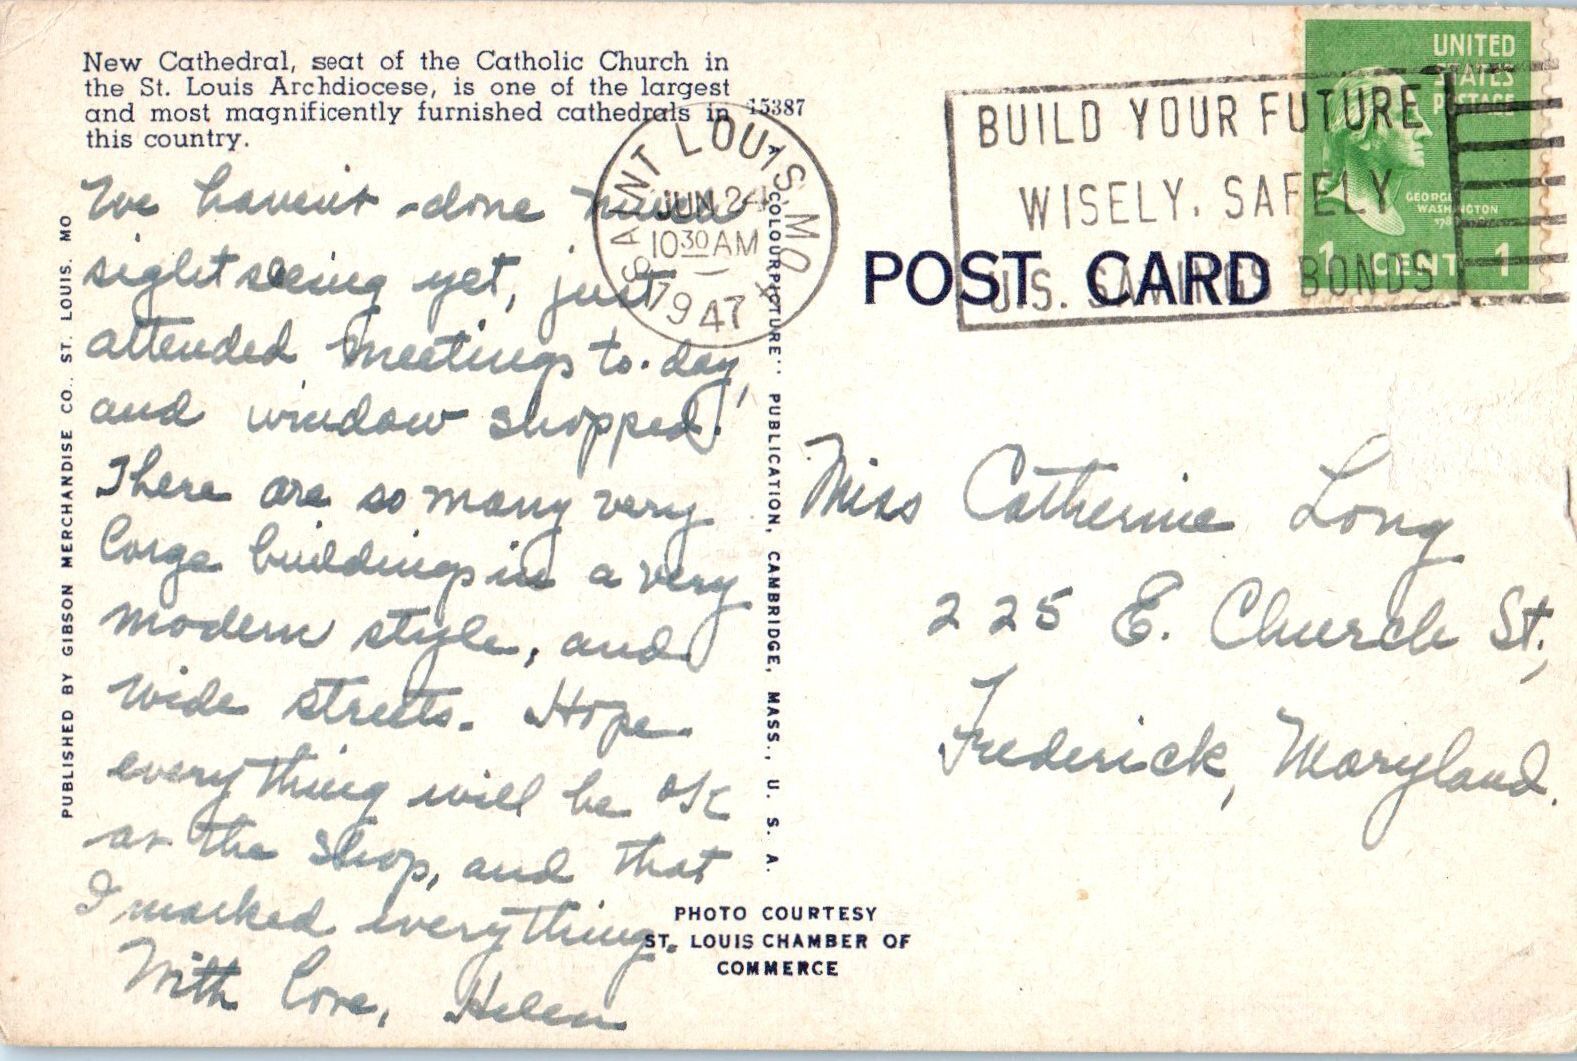 New Cathedral, seat of the Catholic Church in
the St. Louis Archdiocese, is one of the largest
and most magnificently furnished cathedrals in
this country.
15387
We haven't done much
sightseeing yet, just
attended meetings to-day,
and window shopped.
There are so many very
large buildings in a very
modern style, and
wide streets. Hope
everything will be OK
at the shop, and that
I marked everything.
With love, Helen
PUBLISHED BY GIBSON MERCHANDISE CO., ST. LOUIS, MO
A "COLOURPICTURE" PUBLICATION, CAMBRIDGE, MASS., U. S. A.
PHOTO COURTESY
ST. LOUIS CHAMBER OF
COMMERCE
SAINT LOUIS, MO
JUN 24
10 30 AM
1947
BUILD YOUR FUTURE
WISELY, SAFELY
U.S. SAVINGS BONDS
UNITED
STATES
POSTAGE
GEORGE
WASHINGTON
1 CENT 1
POST CARD
Miss Catherine Long
225 E. Church St.,
Frederick, Maryland.